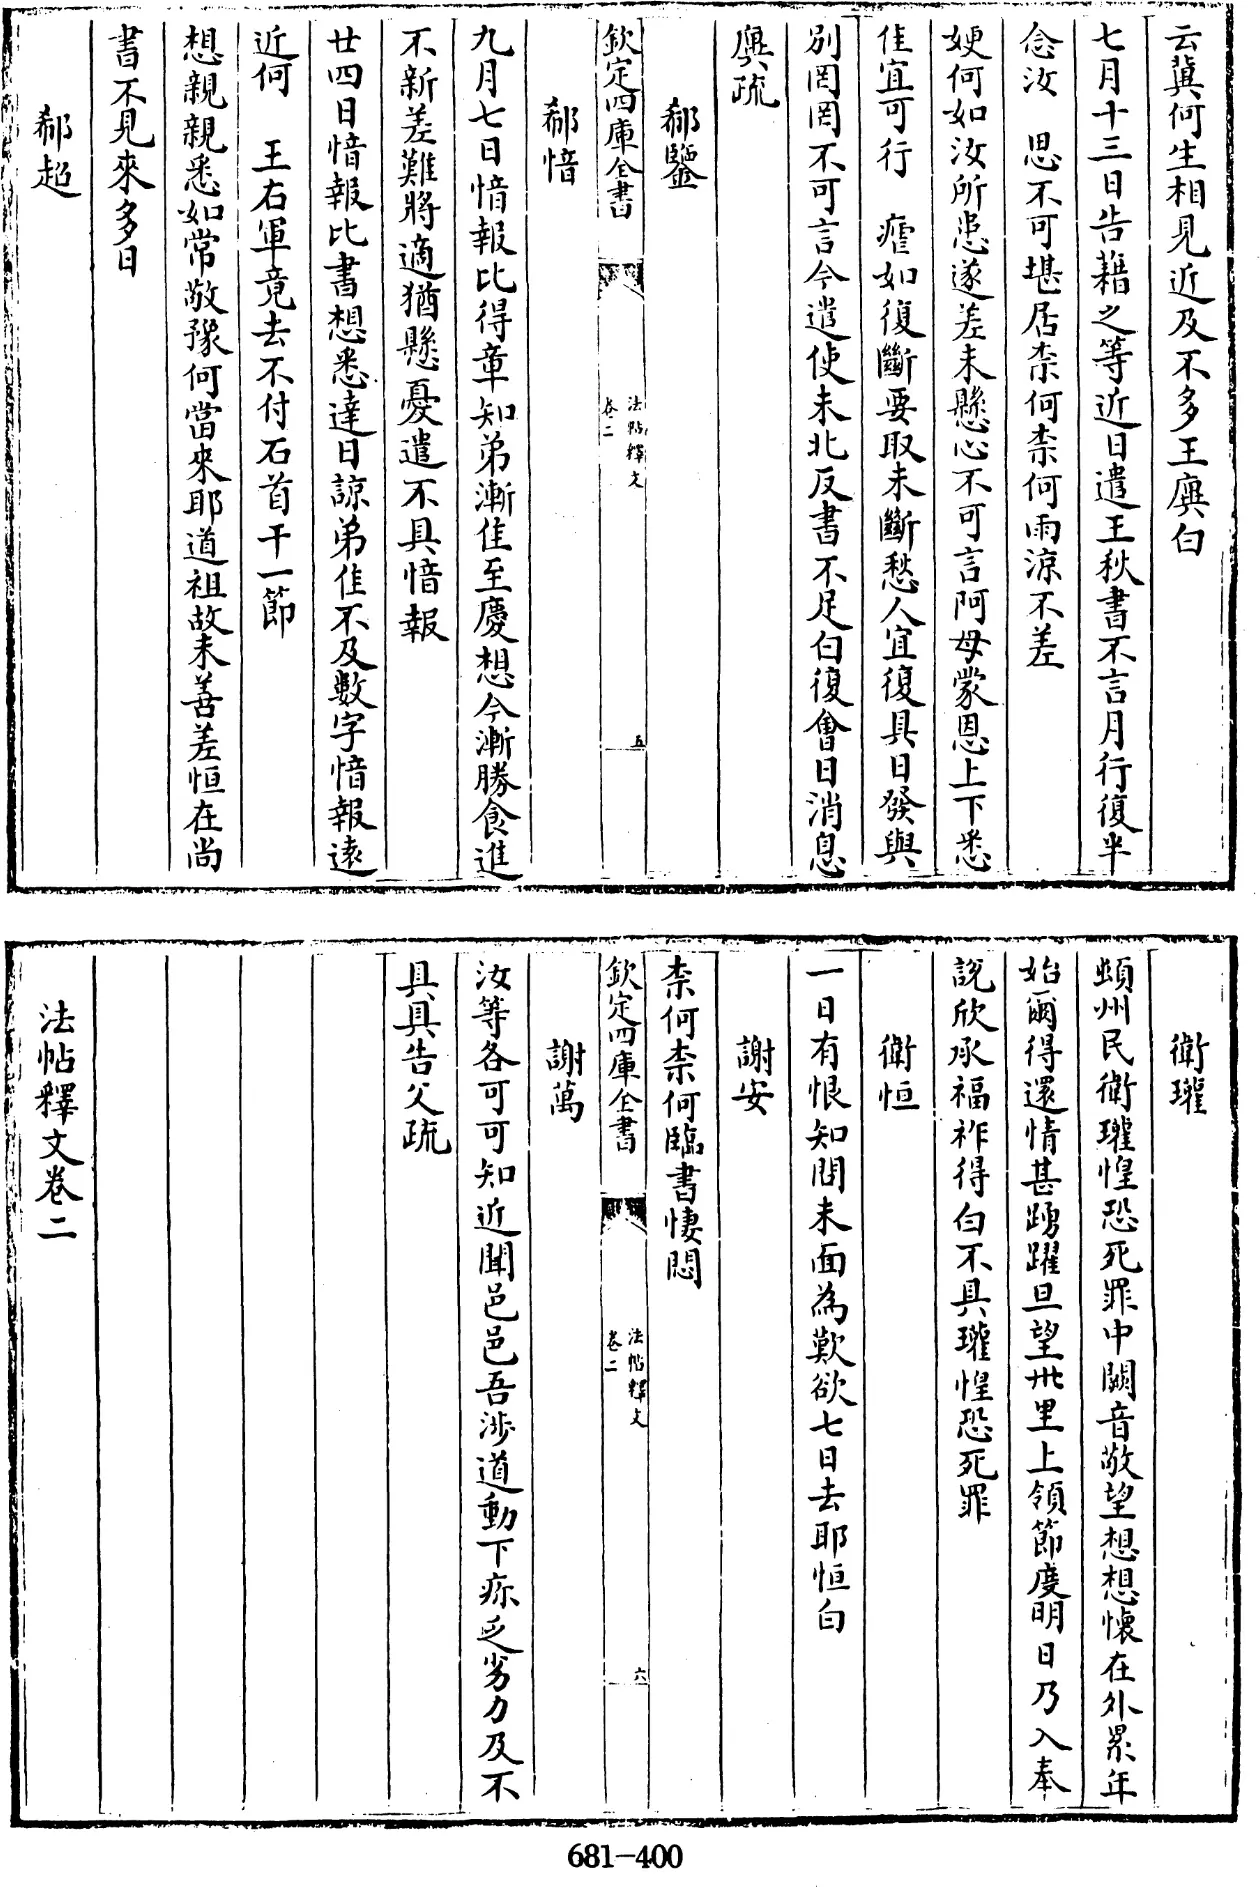 云冀何生相見近及不多王廙白
七月十三日告藉之等近日遣王秋書不言月行復半
念汝　思不可堪居柰何柰何雨涼不差
㛐何如汝所患遂差未懸心不可言阿母蒙恩上下悉
佳宜可行　瘧如復斷要取未斷愁人宜復具日發與
別罔罔不可言今遣使未北反書不足白復會日消息
廙疏
郗鑒
欽定四庫全書
法帖釋文
卷二
五
郗愔
九月七日愔報比得章知弟漸佳至慶想今漸勝食進
不新差難將適猶懸憂遣不具愔報
廿四日愔報比書想悉達日諒弟佳不及數字愔報遠
近何　王右軍竟去不付石首干一節
想親親悉如常敬豫何當來耶道祖故未善差恒在尚
書不見來多日
郗超
衛瓘
頓州民衛瓘惶恐死罪中闕音敬望想想懷在外累年
始爾得還情甚踴躍旦望卅里上領節度明日乃入奉
說欣承福祚得白不具瓘惶恐死罪
衛恒
一日有恨知問未面為歎欲七日去耶恒白
謝安
柰何柰何臨書悽悶
欽定四庫全書
法帖釋文
卷二
六
謝萬
汝等各可可知近聞邑邑吾涉道動下疢乏劣力及不
具具告父疏
法帖釋文卷二
681-400